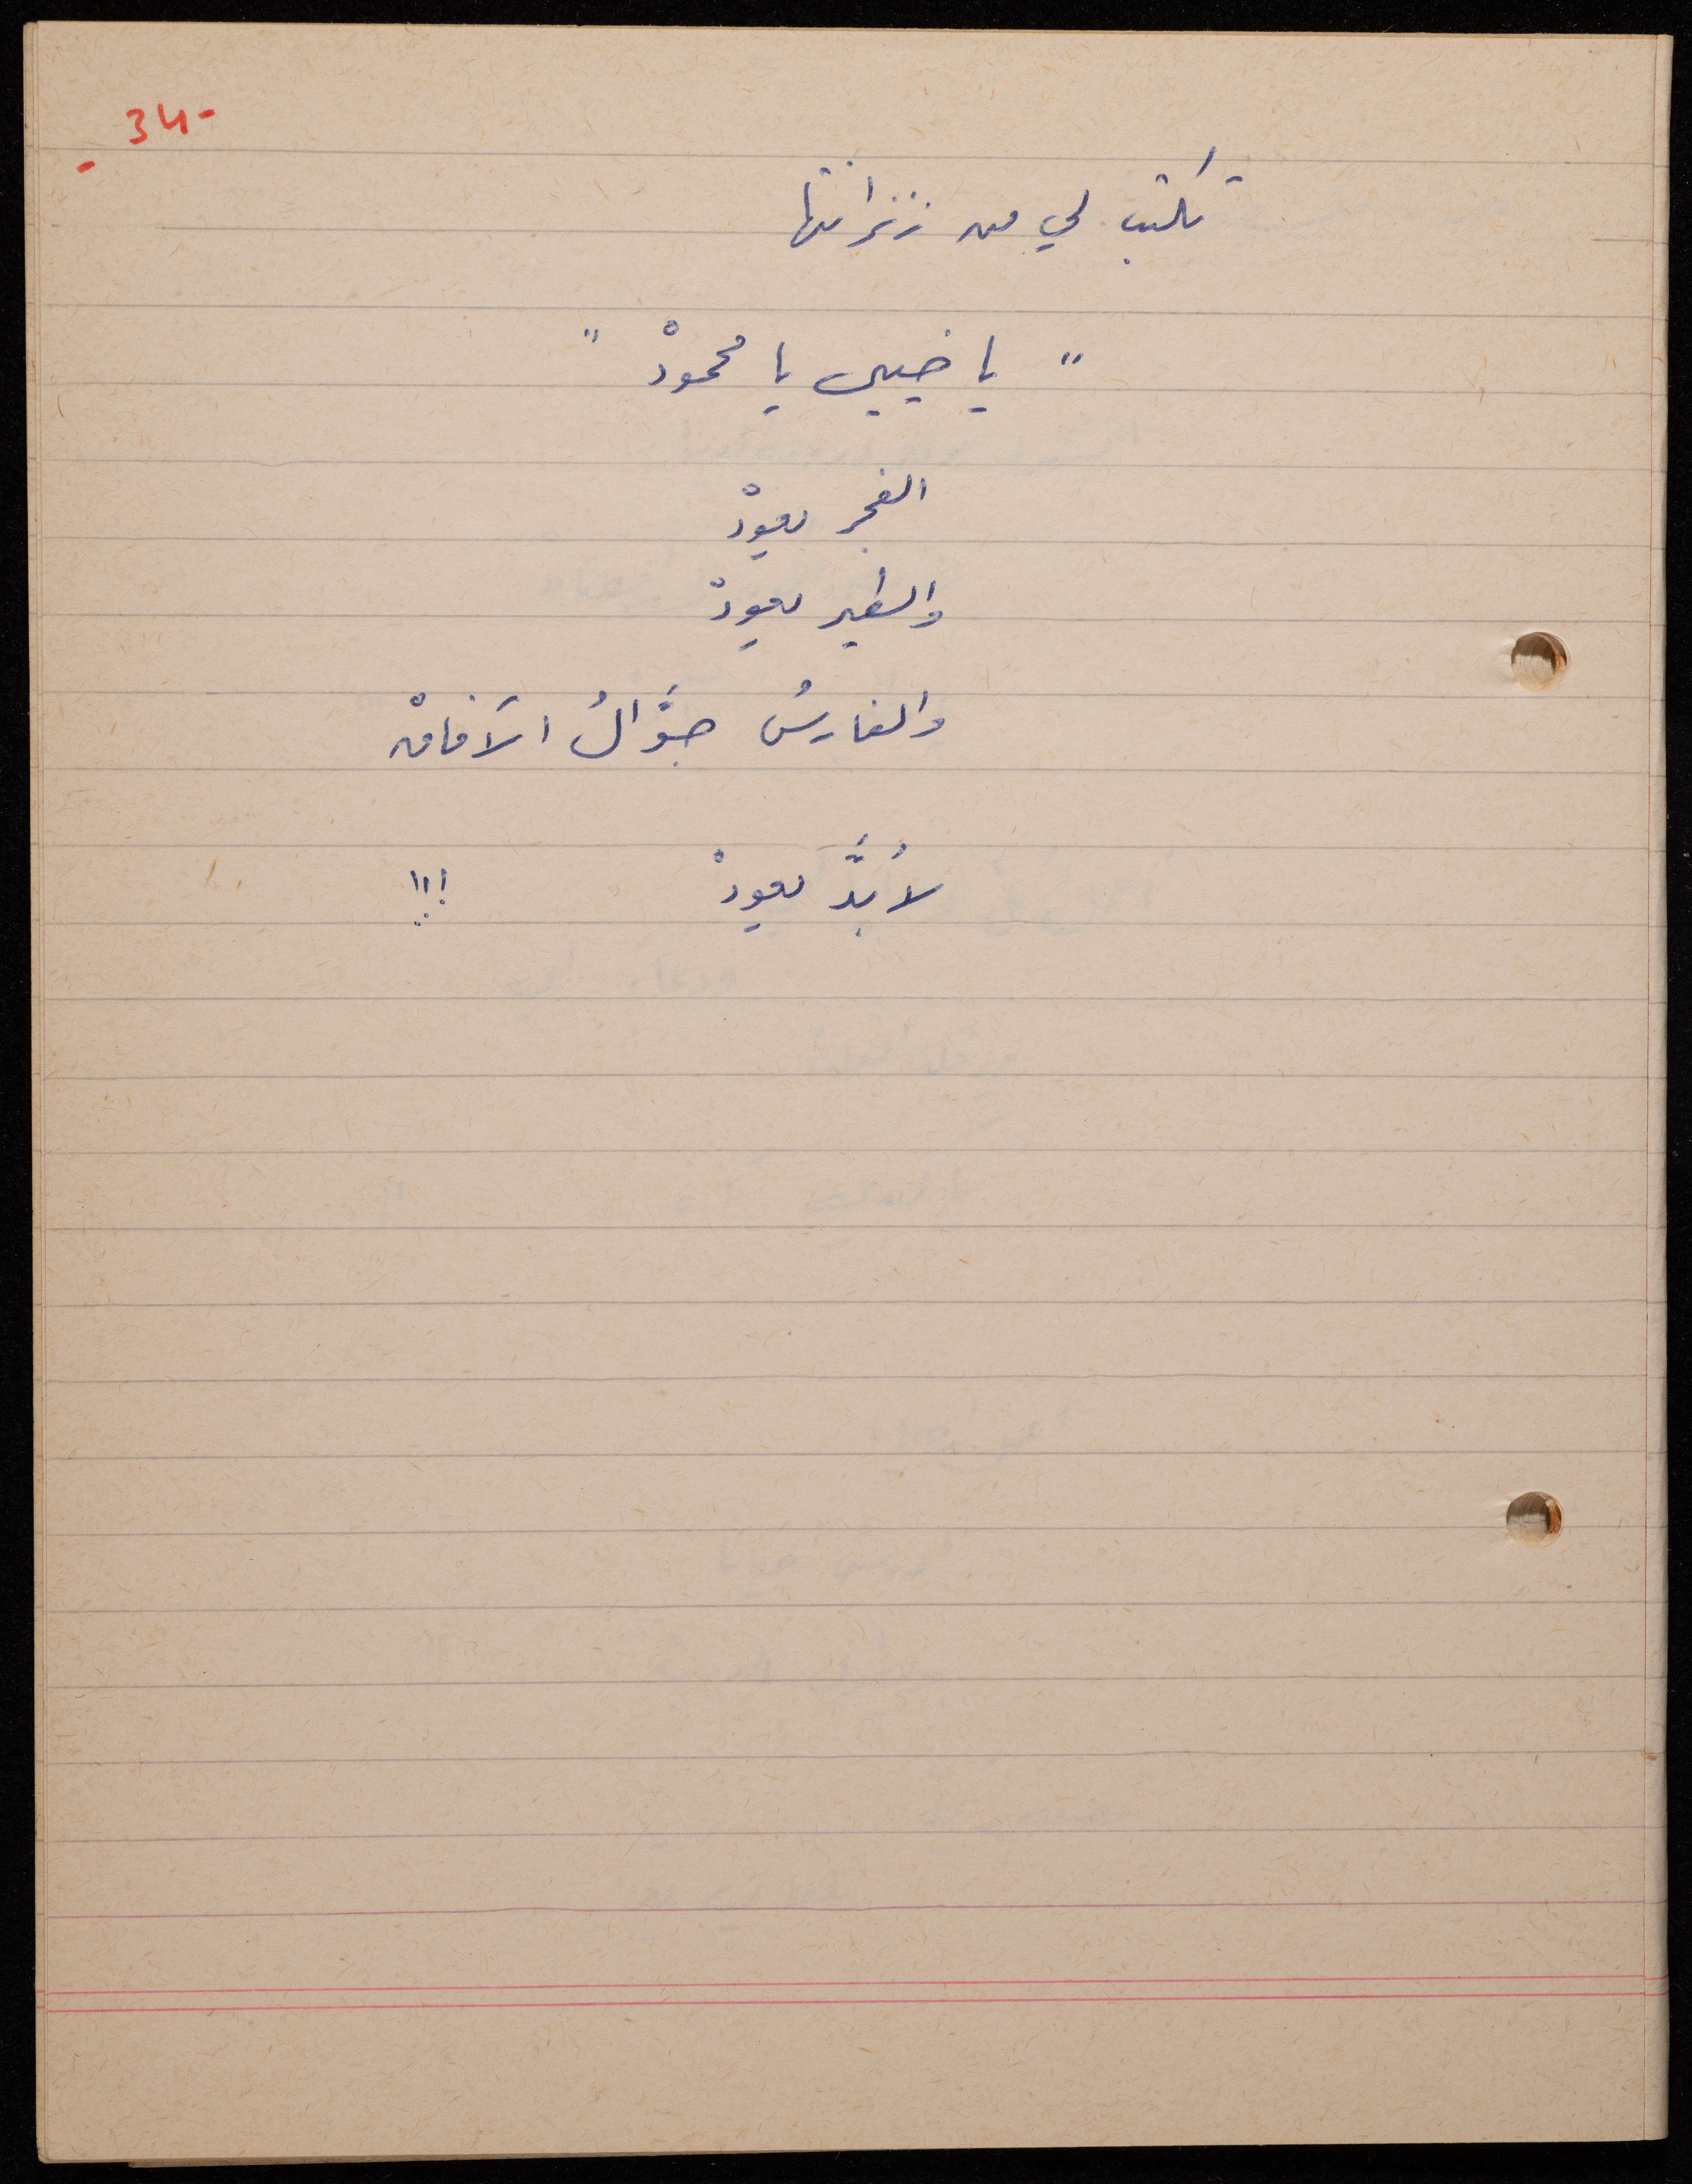 - 34 -
تكتب لي من زنزانتها
" يا حبيبي يا محمودْ "
الفجر يعودْ
والطير يعودْ
والفارسُ جوَّالُ الآفاقْ
لا بُدَّ يعودْ !!!